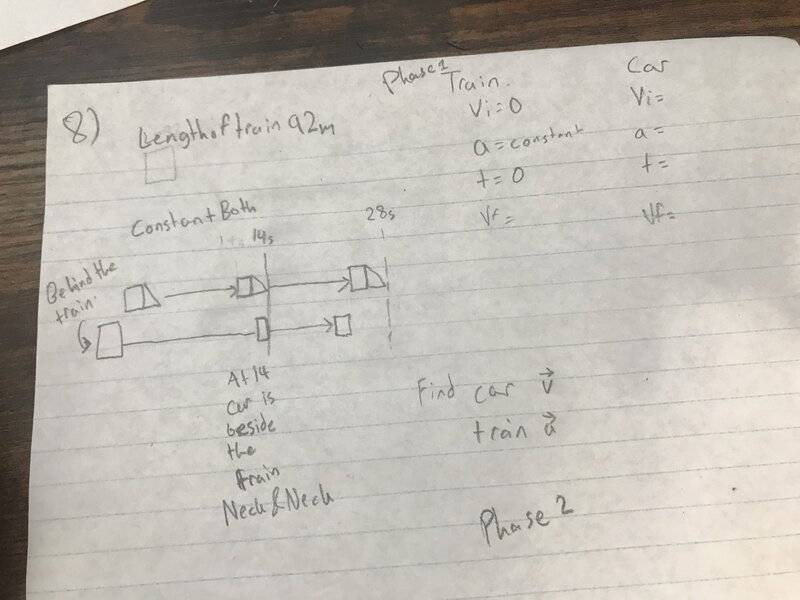 8)
Length of train 92m
Phase 1
Train.
Vi=0
a=constant
t=0
Vf=
Car
Vi=
a=
t=
Vf=
Constant Both
14s
28s
Behind the
train.
At 14
car is
beside
the
train
Neck & Neck
Find car v⃗
train a⃗
Phase 2